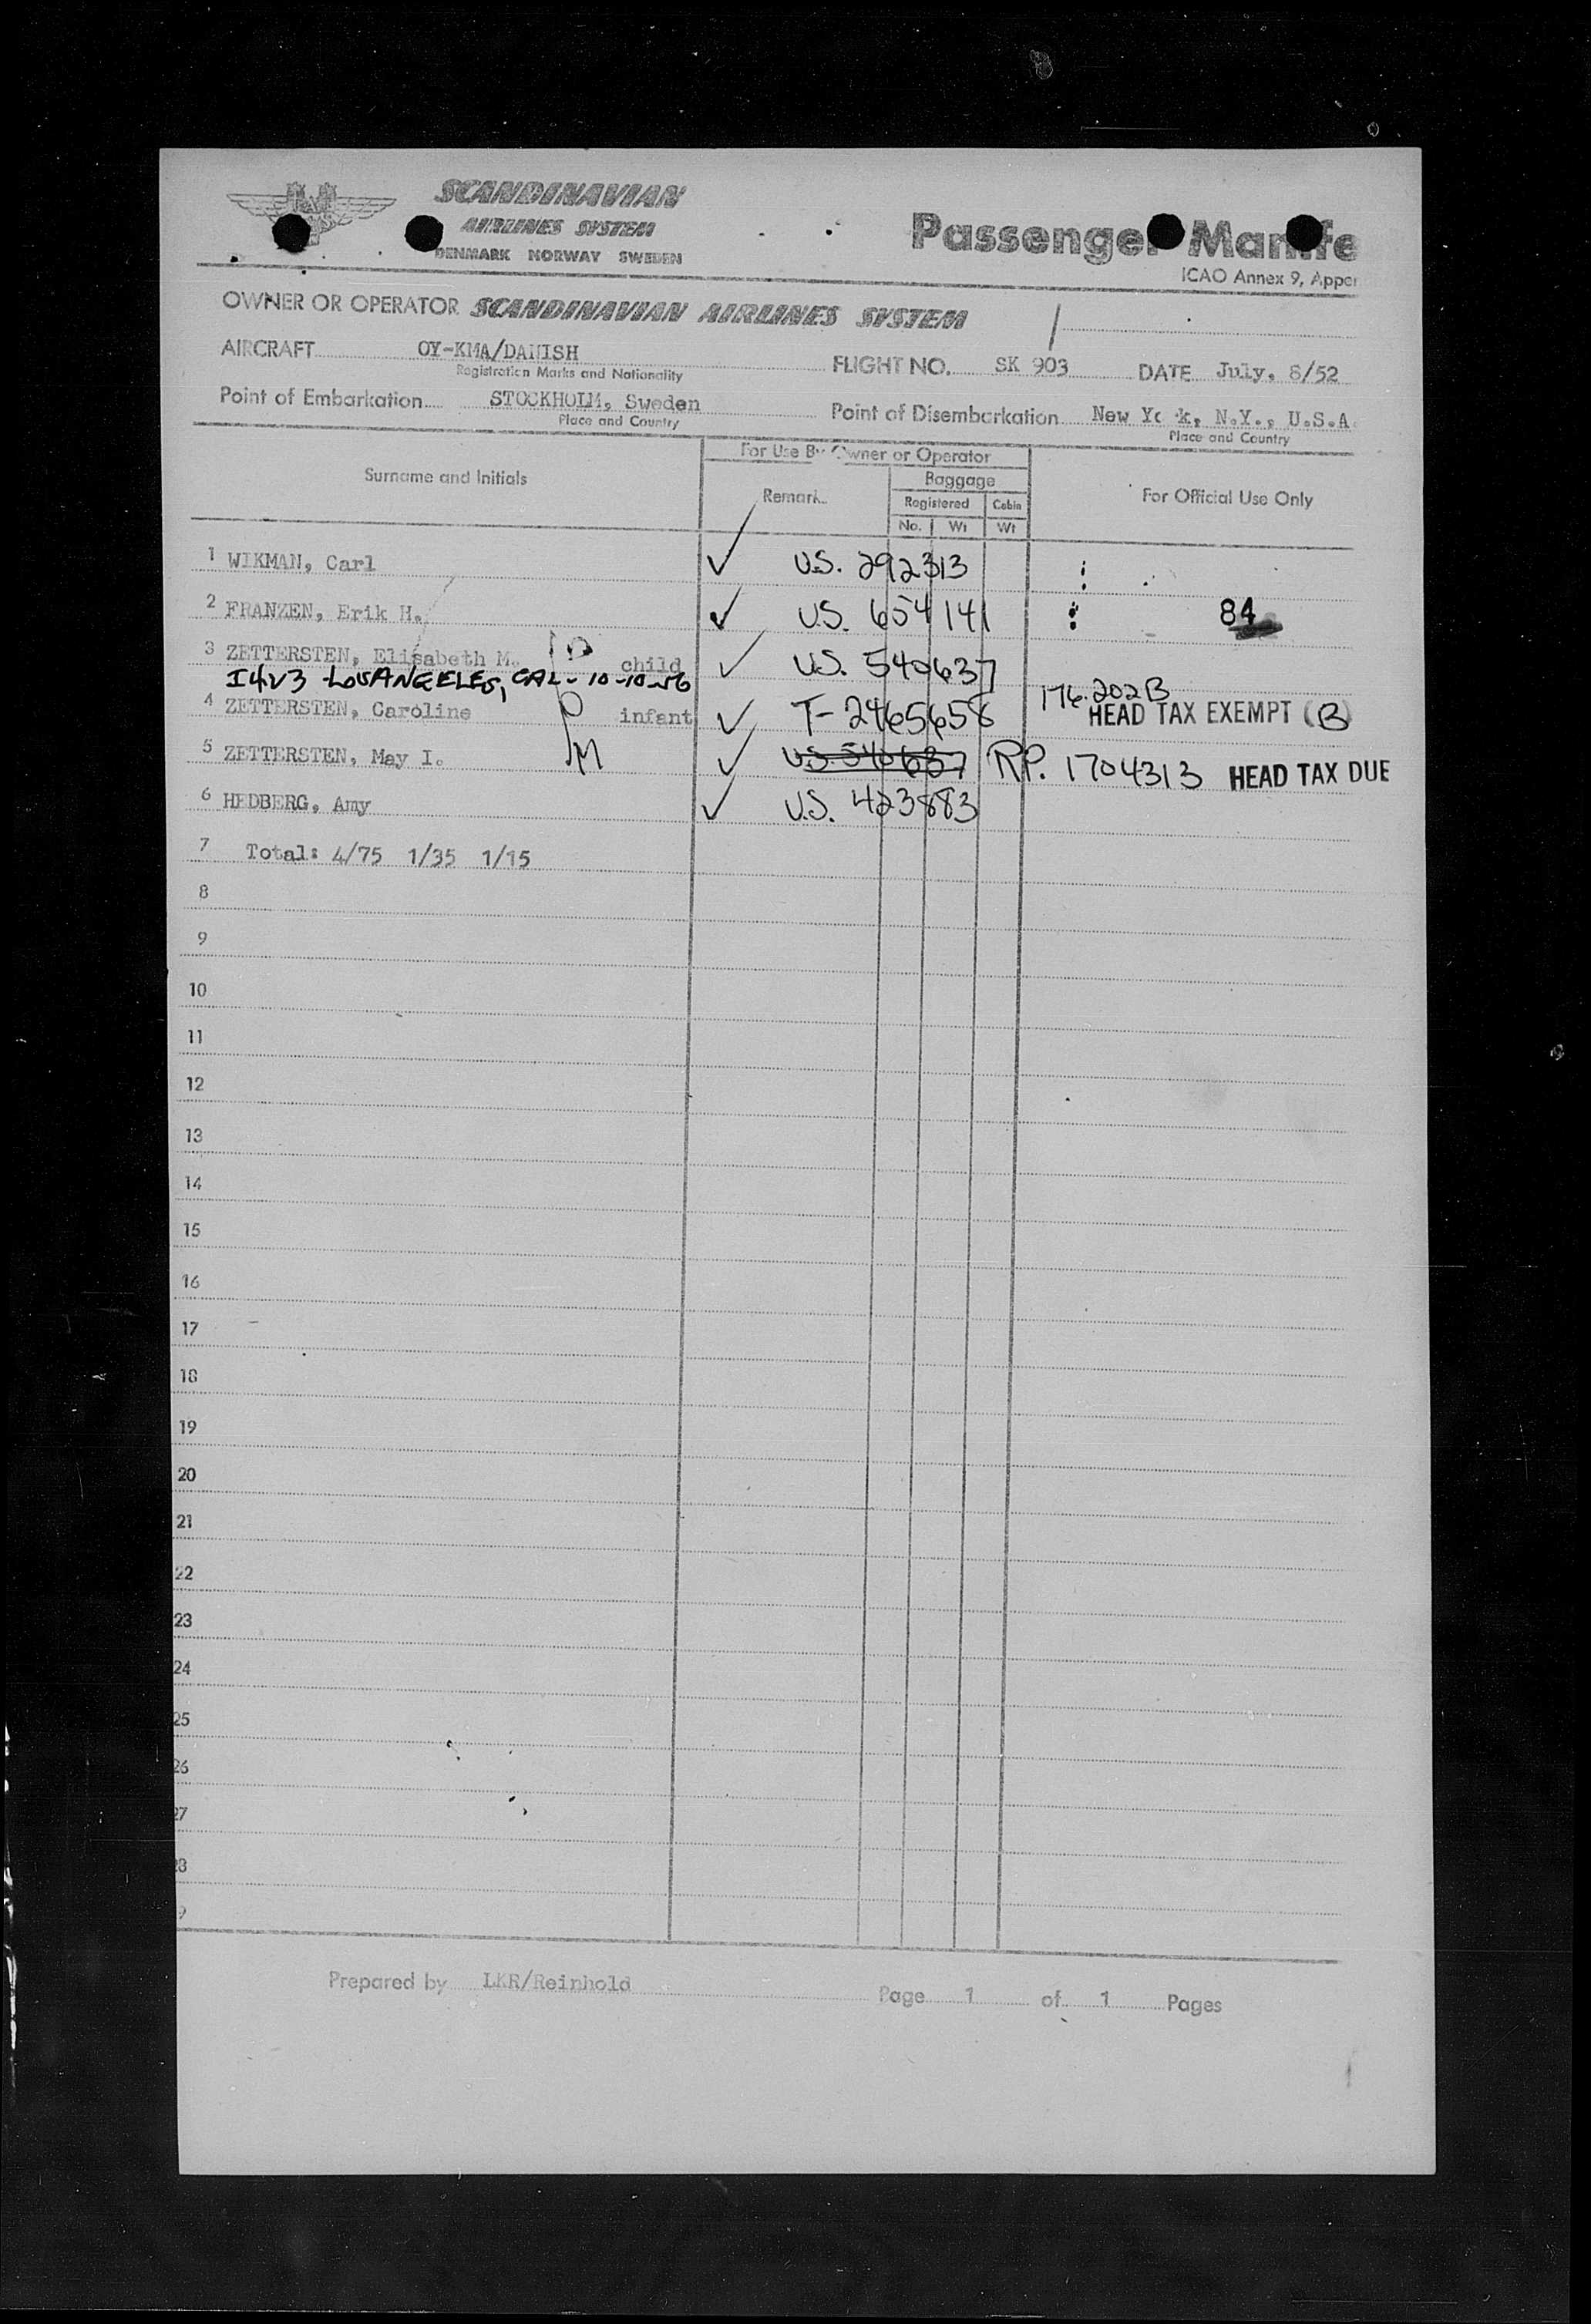 SCANDINAVIAN
AIRLINES SYSTEM
DENMARK NORWAY SWEDEN
Passenger Manife
ICAO Annex 9, Apper
OWNER OR OPERATOR SCANDINAVIAN AIRLINES SYSTEM
AIRCRAFT OY-KMA/DANISH FLIGHT NO. SK 903 DATE July, 8/52
Registration Marks and Nationality
Point of Embarkation STOCKHOLM, Sweden Point of Disembarkation New York, N.Y., U.S.A.
Place and Country Place and Country
Surname and Initials For Use By Owner or Operator For Official Use Only
Remark Baggage
Registered Cabin
No. Wt Wt
1 WIKMAN, Carl ✓ U.S. 292313
2 FRANZEN, Erik H. ✓ U.S. 654141 84
3 ZETTERSTEN, Elisabeth M. child ✓ U.S. 540637
I4V3 LOS ANGELES, CAL - 10-10-56 176.202B
4 ZETTERSTEN, Caroline infant ✓ T-2465658 HEAD TAX EXEMPT (B)
5 ZETTERSTEN, May I. M ✓ U.S. 540637 RP. 1704313 HEAD TAX DUE
6 HEDBERG, Amy ✓ U.S. 423883
7 Total: 4/75 1/35 1/15
8
9
10
11
12
13
14
15
16
17
18
19
20
21
22
23
24
25
26
27
28
9
Prepared by LKR/Reinhold Page 1 of 1 Pages